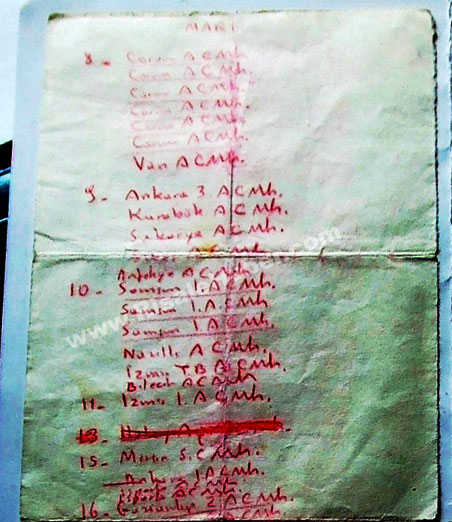 MART
8 - Çorum A C Mh.
Çorum A C Mh.
Çorum A C Mh.
Çorum A C Mh.
Çorum A C Mh.
Çorum A C Mh.
Van A C Mh.
9 - Ankara 3. A C Mh.
Karabük A C Mh.
Sakarya A C Mh.
A C Mh.
Antalya A C Mh.
10 - Samsun 1. A C Mh.
Samsun 1. A C Mh.
Samsun 1. A C Mh.
Nazilli A C Mh.
İzmir TB A C Mh.
Bilecik A C Mh.
11 - İzmir 1. A C Mh.
13 -
15 - Mersin 5. C Mh.
Ankara 1 A C Mh.
A C Mh.
16 - Gaziantep 2 A C Mh.
A C Mh.